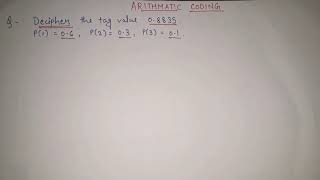 ARITHMATIC CODING
Q- Decipher the tag value 0.8835
P(1) = 0.6, P(2) = 0.3, P(3) = 0.1.